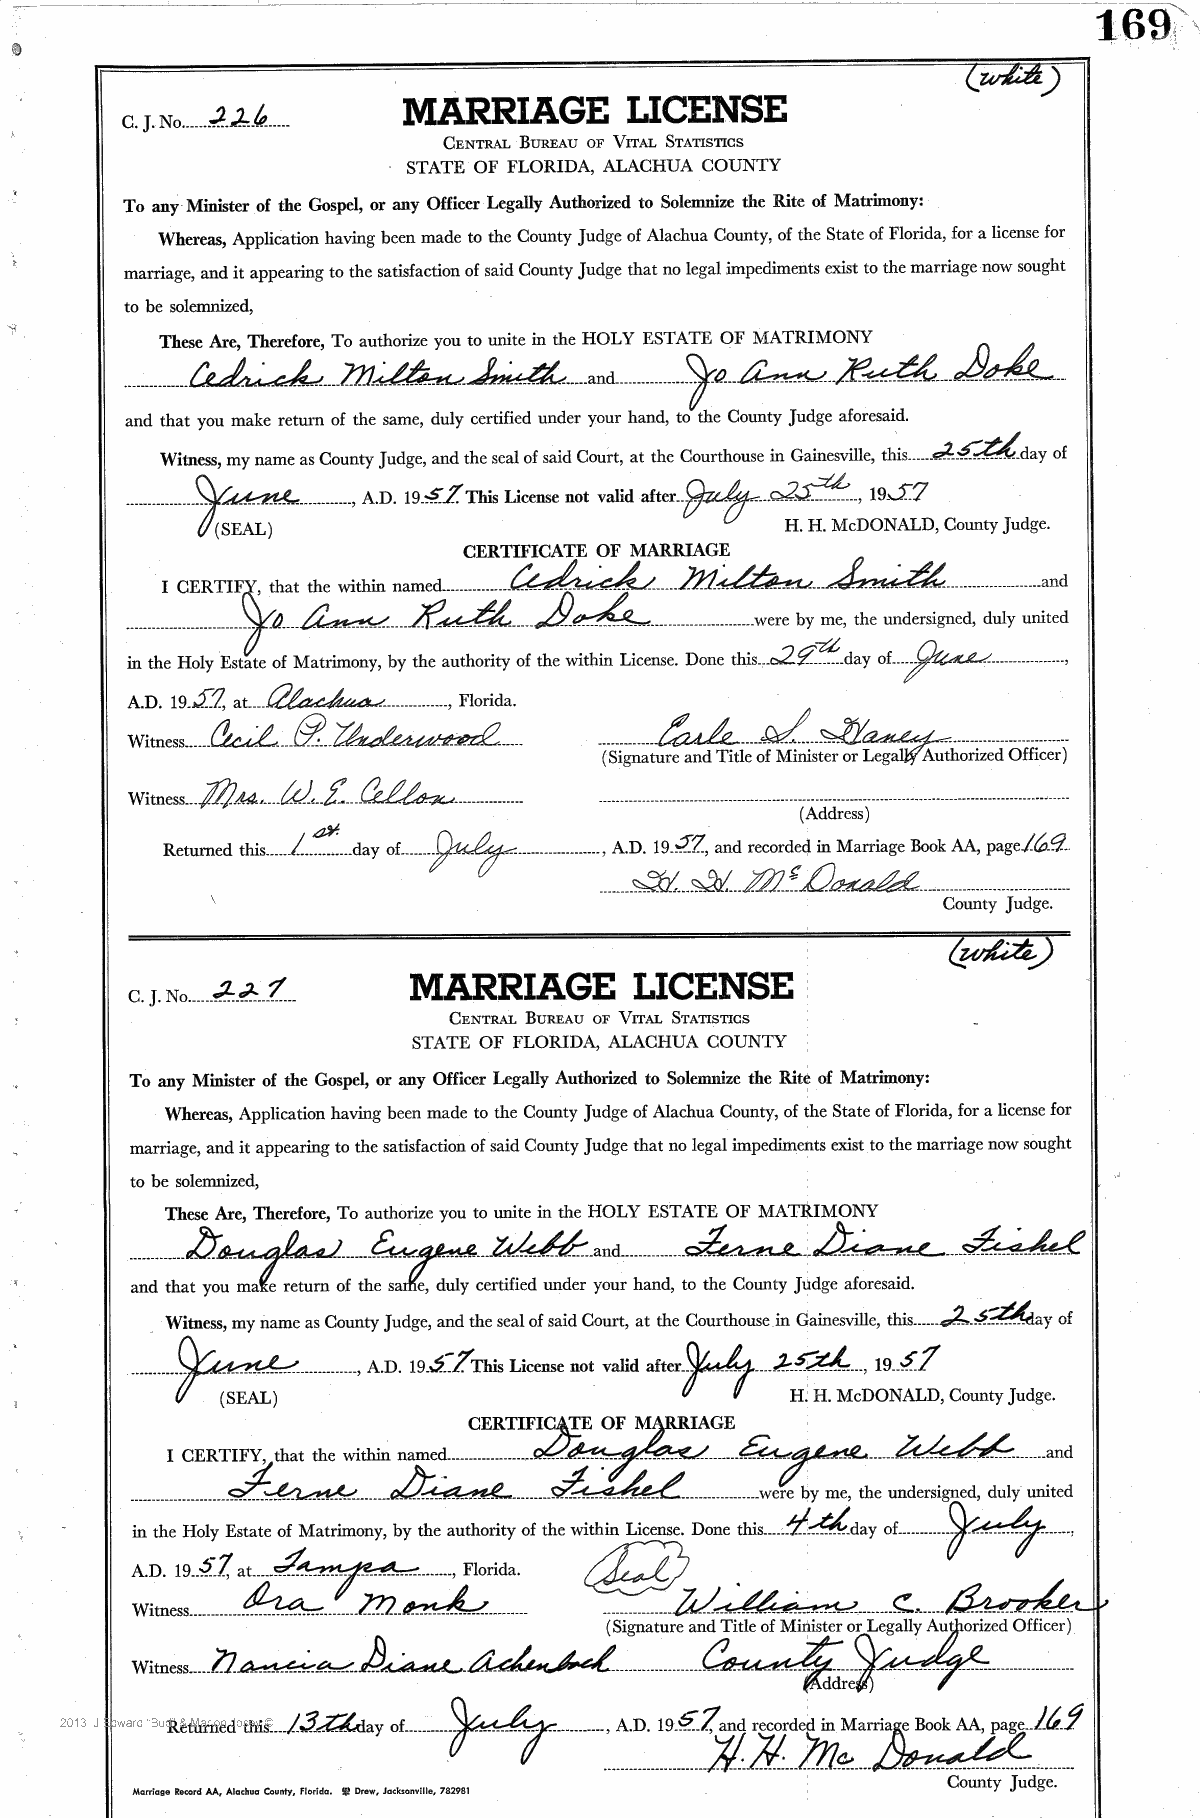 169
(white)
C. J. No. 226
MARRIAGE LICENSE
CENTRAL BUREAU OF VITAL STATISTICS
STATE OF FLORIDA, ALACHUA COUNTY
To any Minister of the Gospel, or any Officer Legally Authorized to Solemnize the Rite of Matrimony:
Whereas, Application having been made to the County Judge of Alachua County, of the State of Florida, for a license for
marriage, and it appearing to the satisfaction of said County Judge that no legal impediments exist to the marriage now sought
to be solemnized,
These Are, Therefore, To authorize you to unite in the HOLY ESTATE OF MATRIMONY
Cedrick Milton Smith and Jo Ann Ruth Doke
and that you make return of the same, duly certified under your hand, to the County Judge aforesaid.
Witness, my name as County Judge, and the seal of said Court, at the Courthouse in Gainesville, this 25th day of
June, A.D. 1957 This License not valid after July 25th, 1957
(SEAL) H. H. McDONALD, County Judge.
CERTIFICATE OF MARRIAGE
I CERTIFY, that the within named Cedrick Milton Smith and
Jo Ann Ruth Doke were by me, the undersigned, duly united
in the Holy Estate of Matrimony, by the authority of the within License. Done this 29th day of June,
A.D. 1957, at Alachua, Florida.
Witness Cecil P. Underwood Earle S. Haney
(Signature and Title of Minister or Legally Authorized Officer)
Witness Mrs. W. E. Cellon
(Address)
Returned this 1st. day of July, A.D. 1957, and recorded in Marriage Book AA, page 169
H. H. McDonald
County Judge.
(white)
C. J. No. 227
MARRIAGE LICENSE
CENTRAL BUREAU OF VITAL STATISTICS
STATE OF FLORIDA, ALACHUA COUNTY
To any Minister of the Gospel, or any Officer Legally Authorized to Solemnize the Rite of Matrimony:
Whereas, Application having been made to the County Judge of Alachua County, of the State of Florida, for a license for
marriage, and it appearing to the satisfaction of said County Judge that no legal impediments exist to the marriage now sought
to be solemnized,
These Are, Therefore, To authorize you to unite in the HOLY ESTATE OF MATRIMONY
Douglas Eugene Webb and Ferne Diane Fishel
and that you make return of the same, duly certified under your hand, to the County Judge aforesaid.
Witness, my name as County Judge, and the seal of said Court, at the Courthouse in Gainesville, this 25th day of
June, A.D. 1957 This License not valid after July 25th, 1957
(SEAL) H. H. McDONALD, County Judge.
CERTIFICATE OF MARRIAGE
I CERTIFY, that the within named Douglas Eugene Webb and
Ferne Diane Fishel were by me, the undersigned, duly united
in the Holy Estate of Matrimony, by the authority of the within License. Done this 4th day of July,
A.D. 1957, at Tampa, Florida. Seal
Witness Ora Monk William C. Brooker
(Signature and Title of Minister or Legally Authorized Officer)
Witness Nancia Diane Achenbach County Judge
(Address)
2013 J Edward "Bud"
Returned this 13th day of July, A.D. 1957, and recorded in Marriage Book AA, page 169
H. H. McDonald
County Judge.
Marriage Record AA, Alachua County, Florida. Drew, Jacksonville, 782981